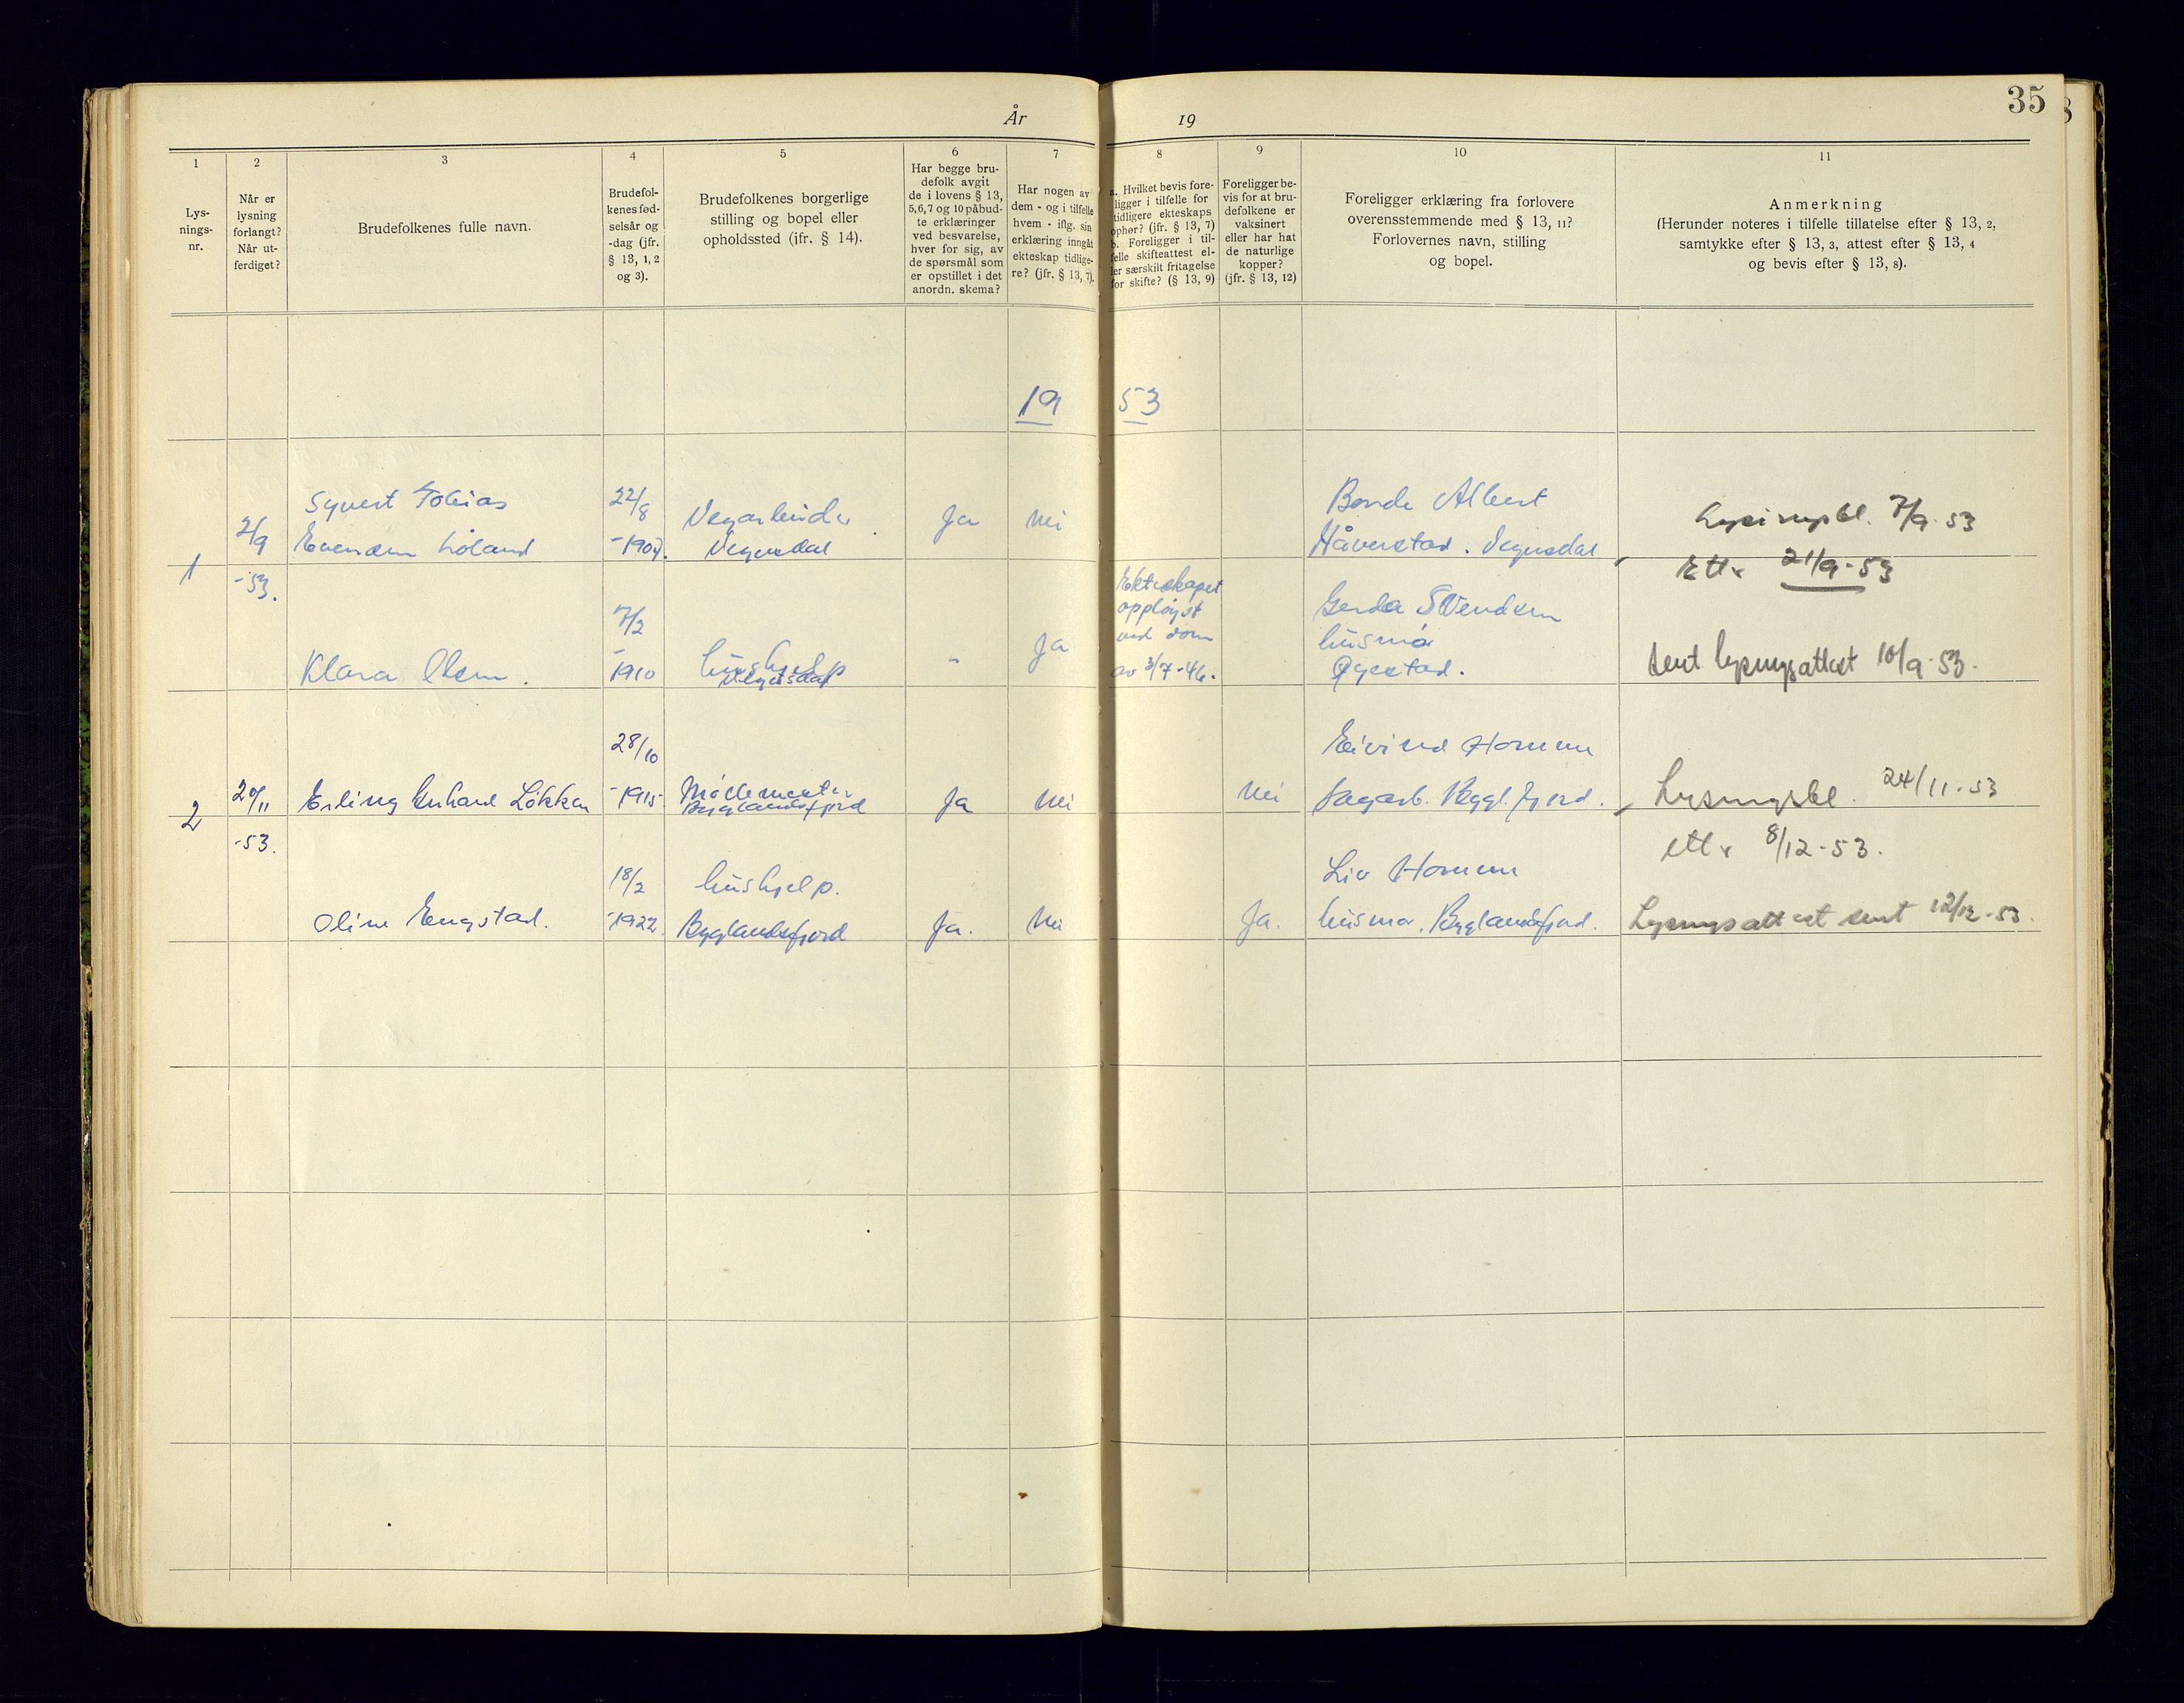 År 19
35
1
Lys-
nings-
nr.
2
Når er
lysning
forlangt?
Når ut-
ferdiget?
3
Brudefolkenes fulle navn.
4
Brudefol-
kenes fød-
selsår og
-dag (jfr.
§ 13, 1, 2
og 3).
5
Brudefolkenes borgerlige
stilling og bopel eller
opholdssted (ifr. § 14).
6
Har begge bru-
defolk avgit
de i lovens § 13,
5, 6, 7 og 10 påbud-
te erklæringer
ved besvarelse,
hver for sig, av
de spørsmål som
er opstillet i det
anordn. skema?
7
Har nogen av
dem - og i tilfelle
hvem - iflg. sin
erklæring inngåt
ekteskap tidlige-
re? (jfr. § 13, 7).
8
a. Hvilket bevis fore-
ligger i tilfelle for
tidligere ekteskaps
ophør? (jfr. § 13, 7)
b. Foreligger i til-
felle skifteattest el-
ler særskilt fritagelse
for skifte? (§ 13, 9)
9
Foreligger be-
vis for at bru-
defolkene er
vaksinert
eller har hat
de naturlige
kopper?
(jfr. § 13, 12)
10
Foreligger erklæring fra forlovere
overensstemmende med § 13, 11?
Forlovernes navn, stilling
og bopel.
11
Anmerkning
(Herunder noteres i tilfelle tillatelse efter § 13, 2,
samtykke efter § 13, 3, attest efter § 13, 4
og bevis efter § 13, 8).
19 53
1
2/9
-53.
Syvert Tobias
Evensen Loland
22/8
-1907.
Vegarbeider
Vegusdal
Ja
Nei
Bonde Albert
Håverstad. Vegusdal
Lysingsbl. 7/9-53
Ett. 21/9-53
Klara Olsen.
7/2
-1910
hushjelp
Vegusdal
-
Ja
Ekteskapet
oppløyst
ved dom
av 3/7-46.
Gerda Svendsen
husmor
Øyestad.
Sent lysingsattest 10/9-53.
2
20/11
-53.
Erling Løkken
28/10
-1915
Møllemester
Byglandsfjord
Ja
Nei
Nei
Eivind Homme
Sagarb. Byggl.fjord.
Lysingsbl. 24/11-53
ett. 8/12-53.
Oline Engstad.
18/2
-1922
hushjelp.
Byglandsfjord
Ja.
Nei
Ja.
Liv Homme
husmor, Byglandsfjord.
Lysingsattest sent 12/12-53.